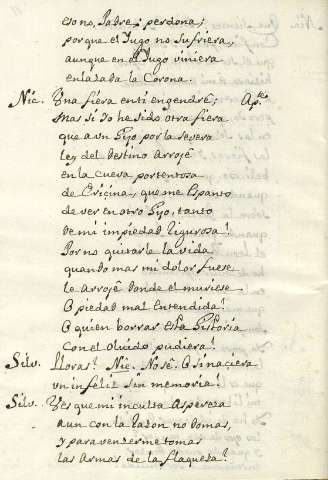 eso no, Padre; perdona;
porque el Yugo no sufriera,
aunque en el Yugo viniera
enlazada la Corona.
Nic. Una fiera en ti engendrè; Ap.te
Mas si Yo he sido otra fiera
que a un Hijo por la severa
ley del destino Arrojè
en la Cueva portentosa
de Ericina, que me Espanto
de ver en otro Hijo, tanto
de mi impiedad rigurosa!
Por no quitarle la vida
quando mas mi dolor fuese
le Arrojè donde el muriese
O piedad mal Entendida!
O quien borrar esta Historia
con el olvido pudiera!
Silv. Lloras? Nic. No sè. O si naciera
un infeliz sin memoria!
Silv. Ves que mi inculta Aspereza
aun con la razon no domas,
y para vencerme tomas
las Armas de la flaqueza?